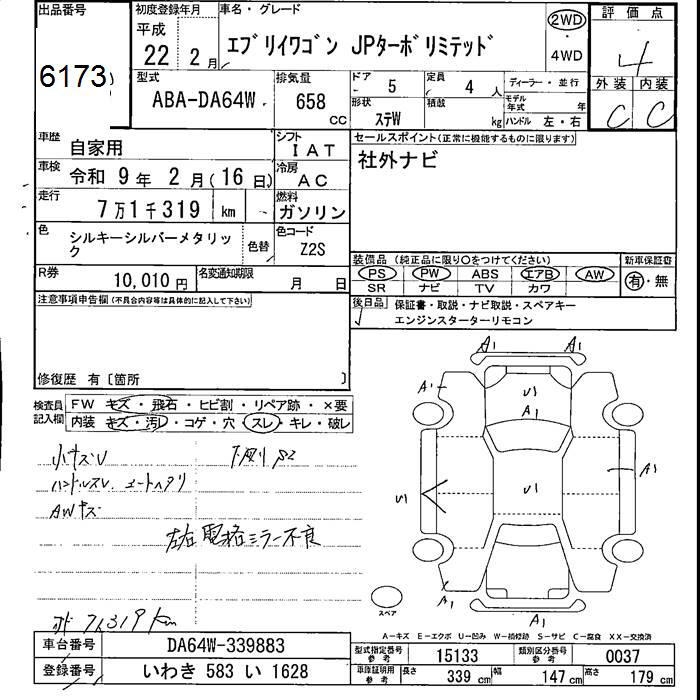 出品番号
6173
初度登録年月
平成
22 2月
車名・グレード
エブリイワゴン JPターボリミテッド
2WD
・
4WD
評価点
4
外装 内装
C C
型式
ABA-DA64W
排気量
658
CC
ドア 5
定員 4 人
ディーラー・並行
形状 ステW
積載 kg
モデル年式 年
ハンドル 左・右
車歴 自家用
シフト IAT
セールスポイント(正常に機能するものに限ります)
社外ナビ
車検 令和 9年 2月(16日)
冷房 AC
走行 7万1千319 km
燃料 ガソリン
色 シルキーシルバーメタリック
色替
色コード Z2S
装備品 (純正品に限り○をつけてください)
新車保証書
PS PW ABS エアB AW
有・無
SR ナビ TV カワ
R券 10,010円
名変通知期限 月 日
後日品 保証書・取説・ナビ取説・スペアキー
エンジンスターターリモコン
注意事項申告欄(不具合内容等は具体的に記入して下さい)
修復歴 有〔箇所 〕
検査員記入欄
FW キズ・飛石・ヒビ割・リペア跡・×要
内装 キズ・汚レ・コゲ・穴 スレ・キレ・破レ
小キズU
ハンドルスレ シートヘタリ
AWキズ
左右電格ミラー不良
71319km
A1 A1
A1
U1
A1
U1
U1
A1
A1
A1
スペア
A−キズ E−エクボ U−凹み W−補修跡 S−サビ C−腐食 XX−交換済
車台番号 DA64W-339883
登録番号 いわき 583 い 1628
型式指定番号 参考 15133
類別区分番号 参考 0037
車庫証明用 参考 長さ 339 cm 幅 147 cm 高さ 179 cm